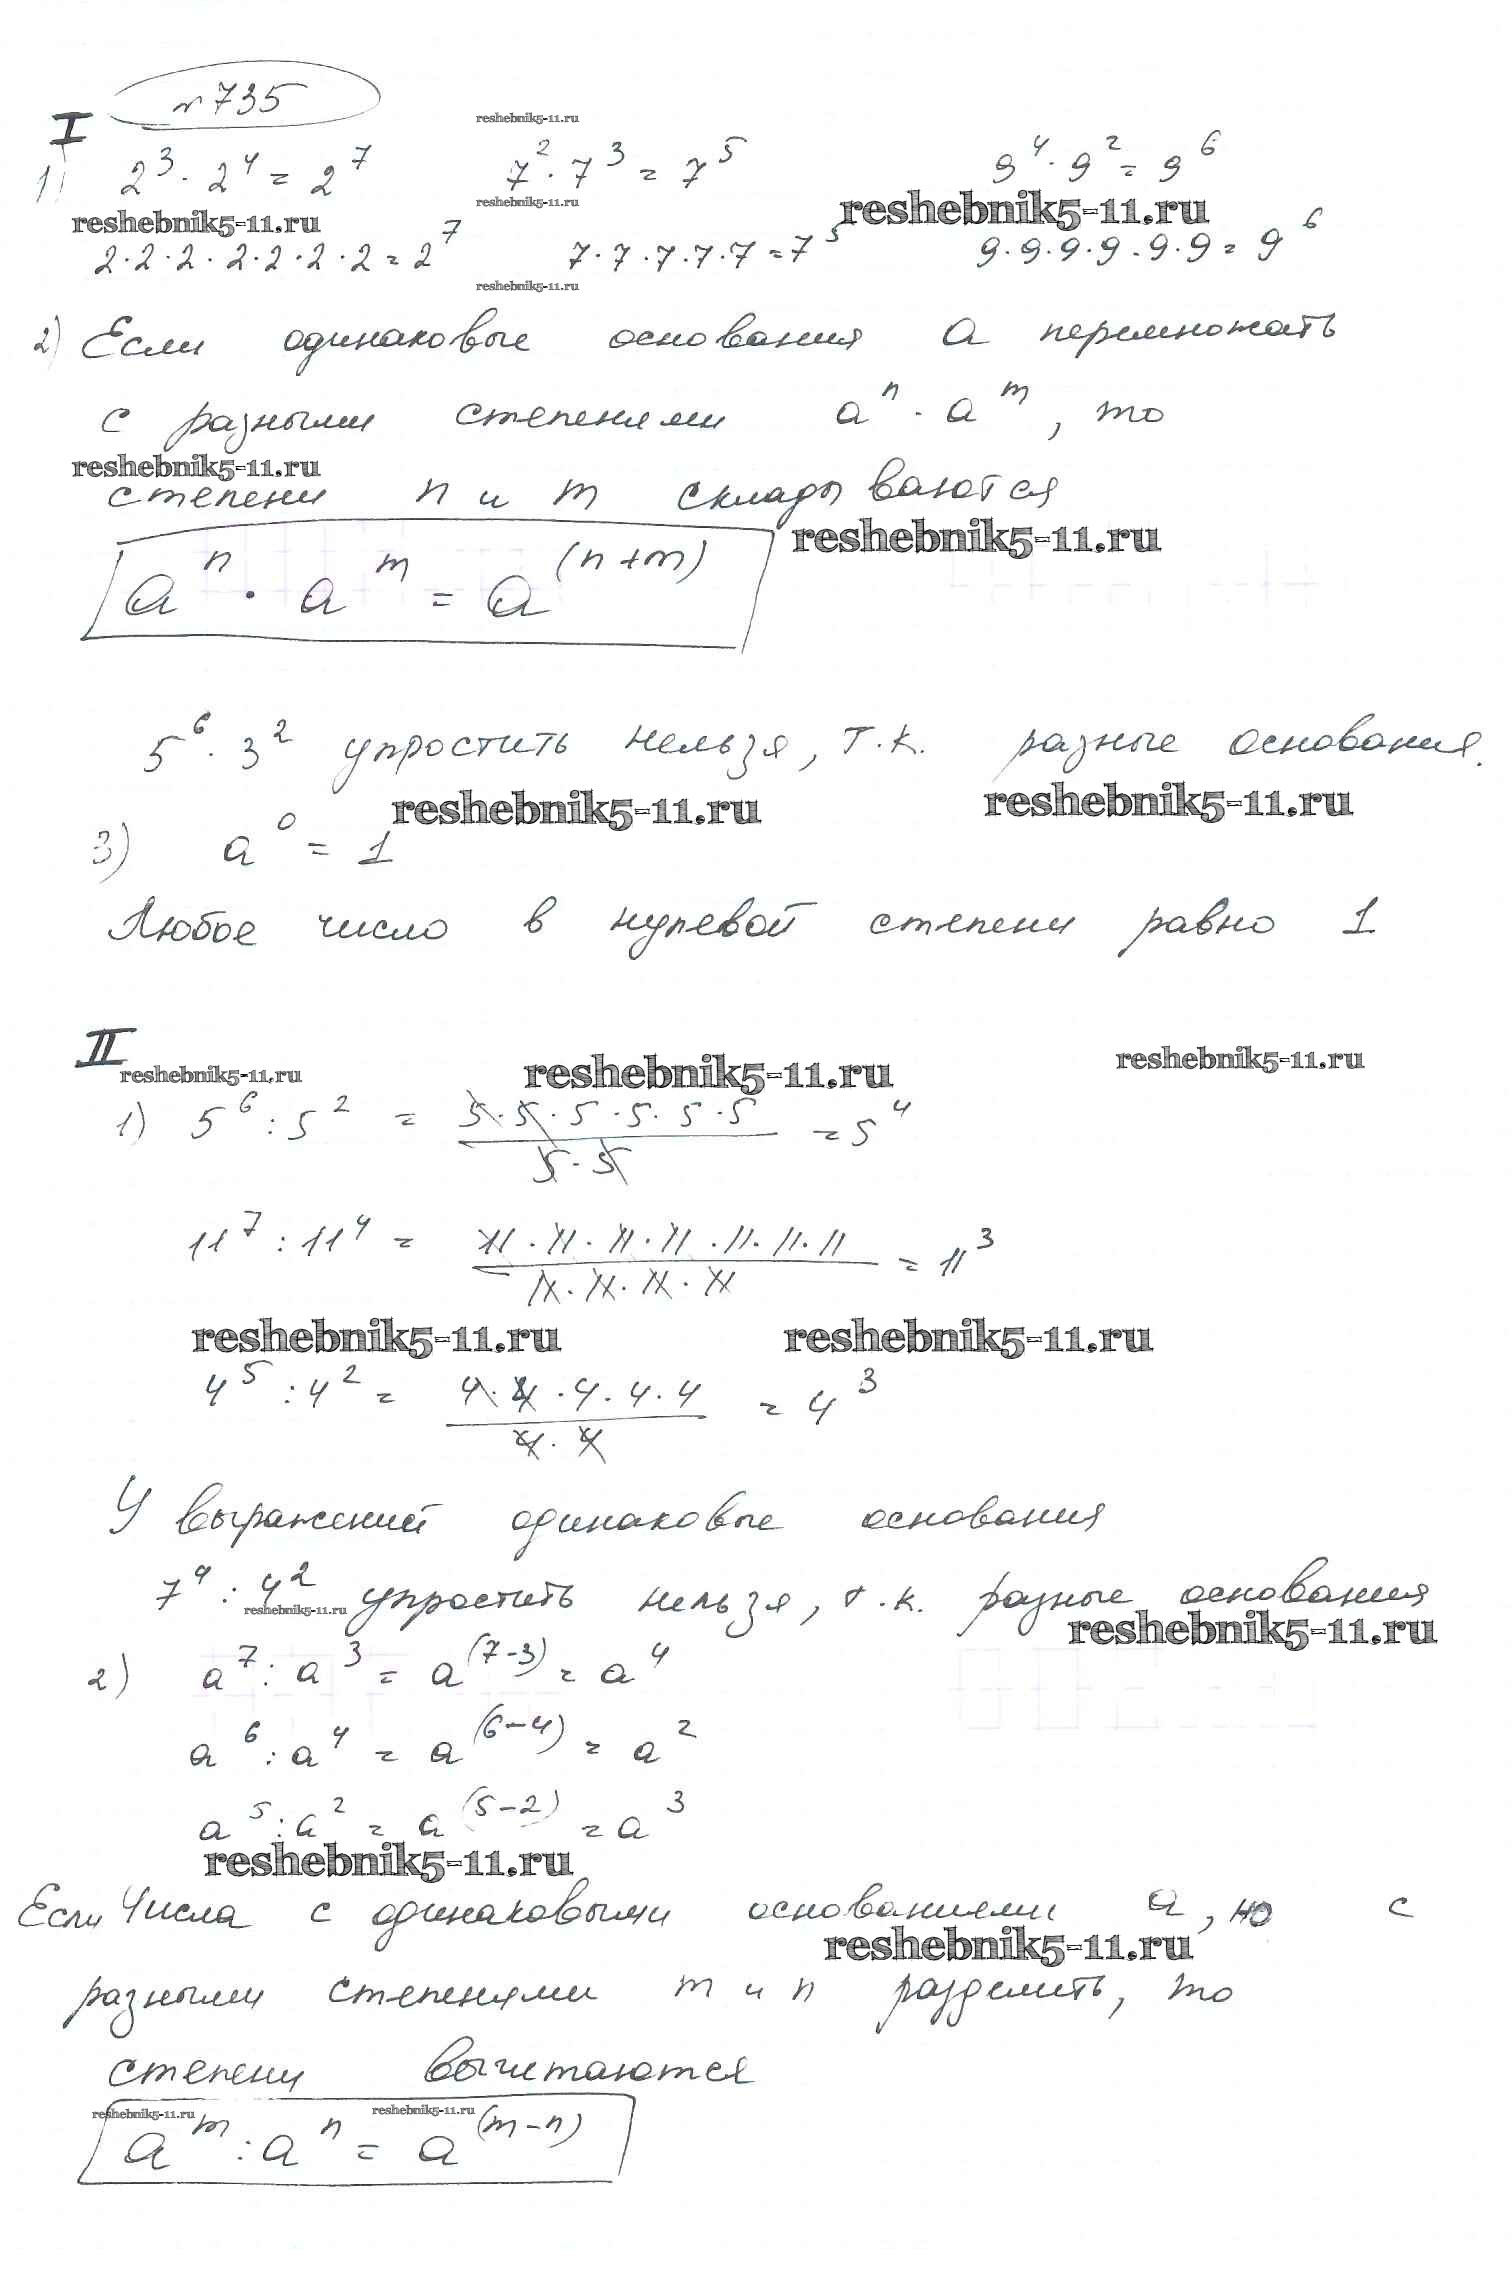 №735
I
reshebnik5-11.ru
1) 2³ · 2⁴ = 2⁷ 7² · 7³ = 7⁵ 9⁴ · 9² = 9⁶
reshebnik5-11.ru reshebnik5-11.ru reshebnik5-11.ru
2·2·2·2·2·2·2=2⁷ 7·7·7·7·7=7⁵ 9·9·9·9·9·9=9⁶
reshebnik5-11.ru
2) Если одинаковые основания a перемножать
с разными степенями aⁿ · aᵐ, то
reshebnik5-11.ru
степени n и m складываются
reshebnik5-11.ru
aⁿ · aᵐ = a⁽ⁿ⁺ᵐ⁾
5⁶ · 3² упростить нельзя, т.к. разные основания.
reshebnik5-11.ru reshebnik5-11.ru
3) a⁰ = 1
Любое число в нулевой степени равно 1
II
reshebnik5-11.ru reshebnik5-11.ru reshebnik5-11.ru
1) 5⁶ : 5² = 5·5·5·5·5·5 = 5⁴
5·5
11⁷ : 11⁴ = 11·11·11·11·11·11·11 = 11³
11·11·11·11
reshebnik5-11.ru reshebnik5-11.ru
4⁵ : 4² = 4·4·4·4·4 = 4³
4·4
У выражений одинаковые основания
7⁴ : 4² упростить нельзя, т.к. разные основания
reshebnik5-11.ru reshebnik5-11.ru
2) a⁷ : a³ = a⁽⁷⁻³⁾ = a⁴
a⁶ : a⁴ = a⁽⁶⁻⁴⁾ = a²
a⁵ : a² = a⁽⁵⁻²⁾ = a³
reshebnik5-11.ru
Если числа с одинаковыми основаниями a, но с
reshebnik5-11.ru
разными степенями m и n разделить, то
степени вычетаются
reshebnik5-11.ru reshebnik5-11.ru
aᵐ : aⁿ = a⁽ᵐ⁻ⁿ⁾